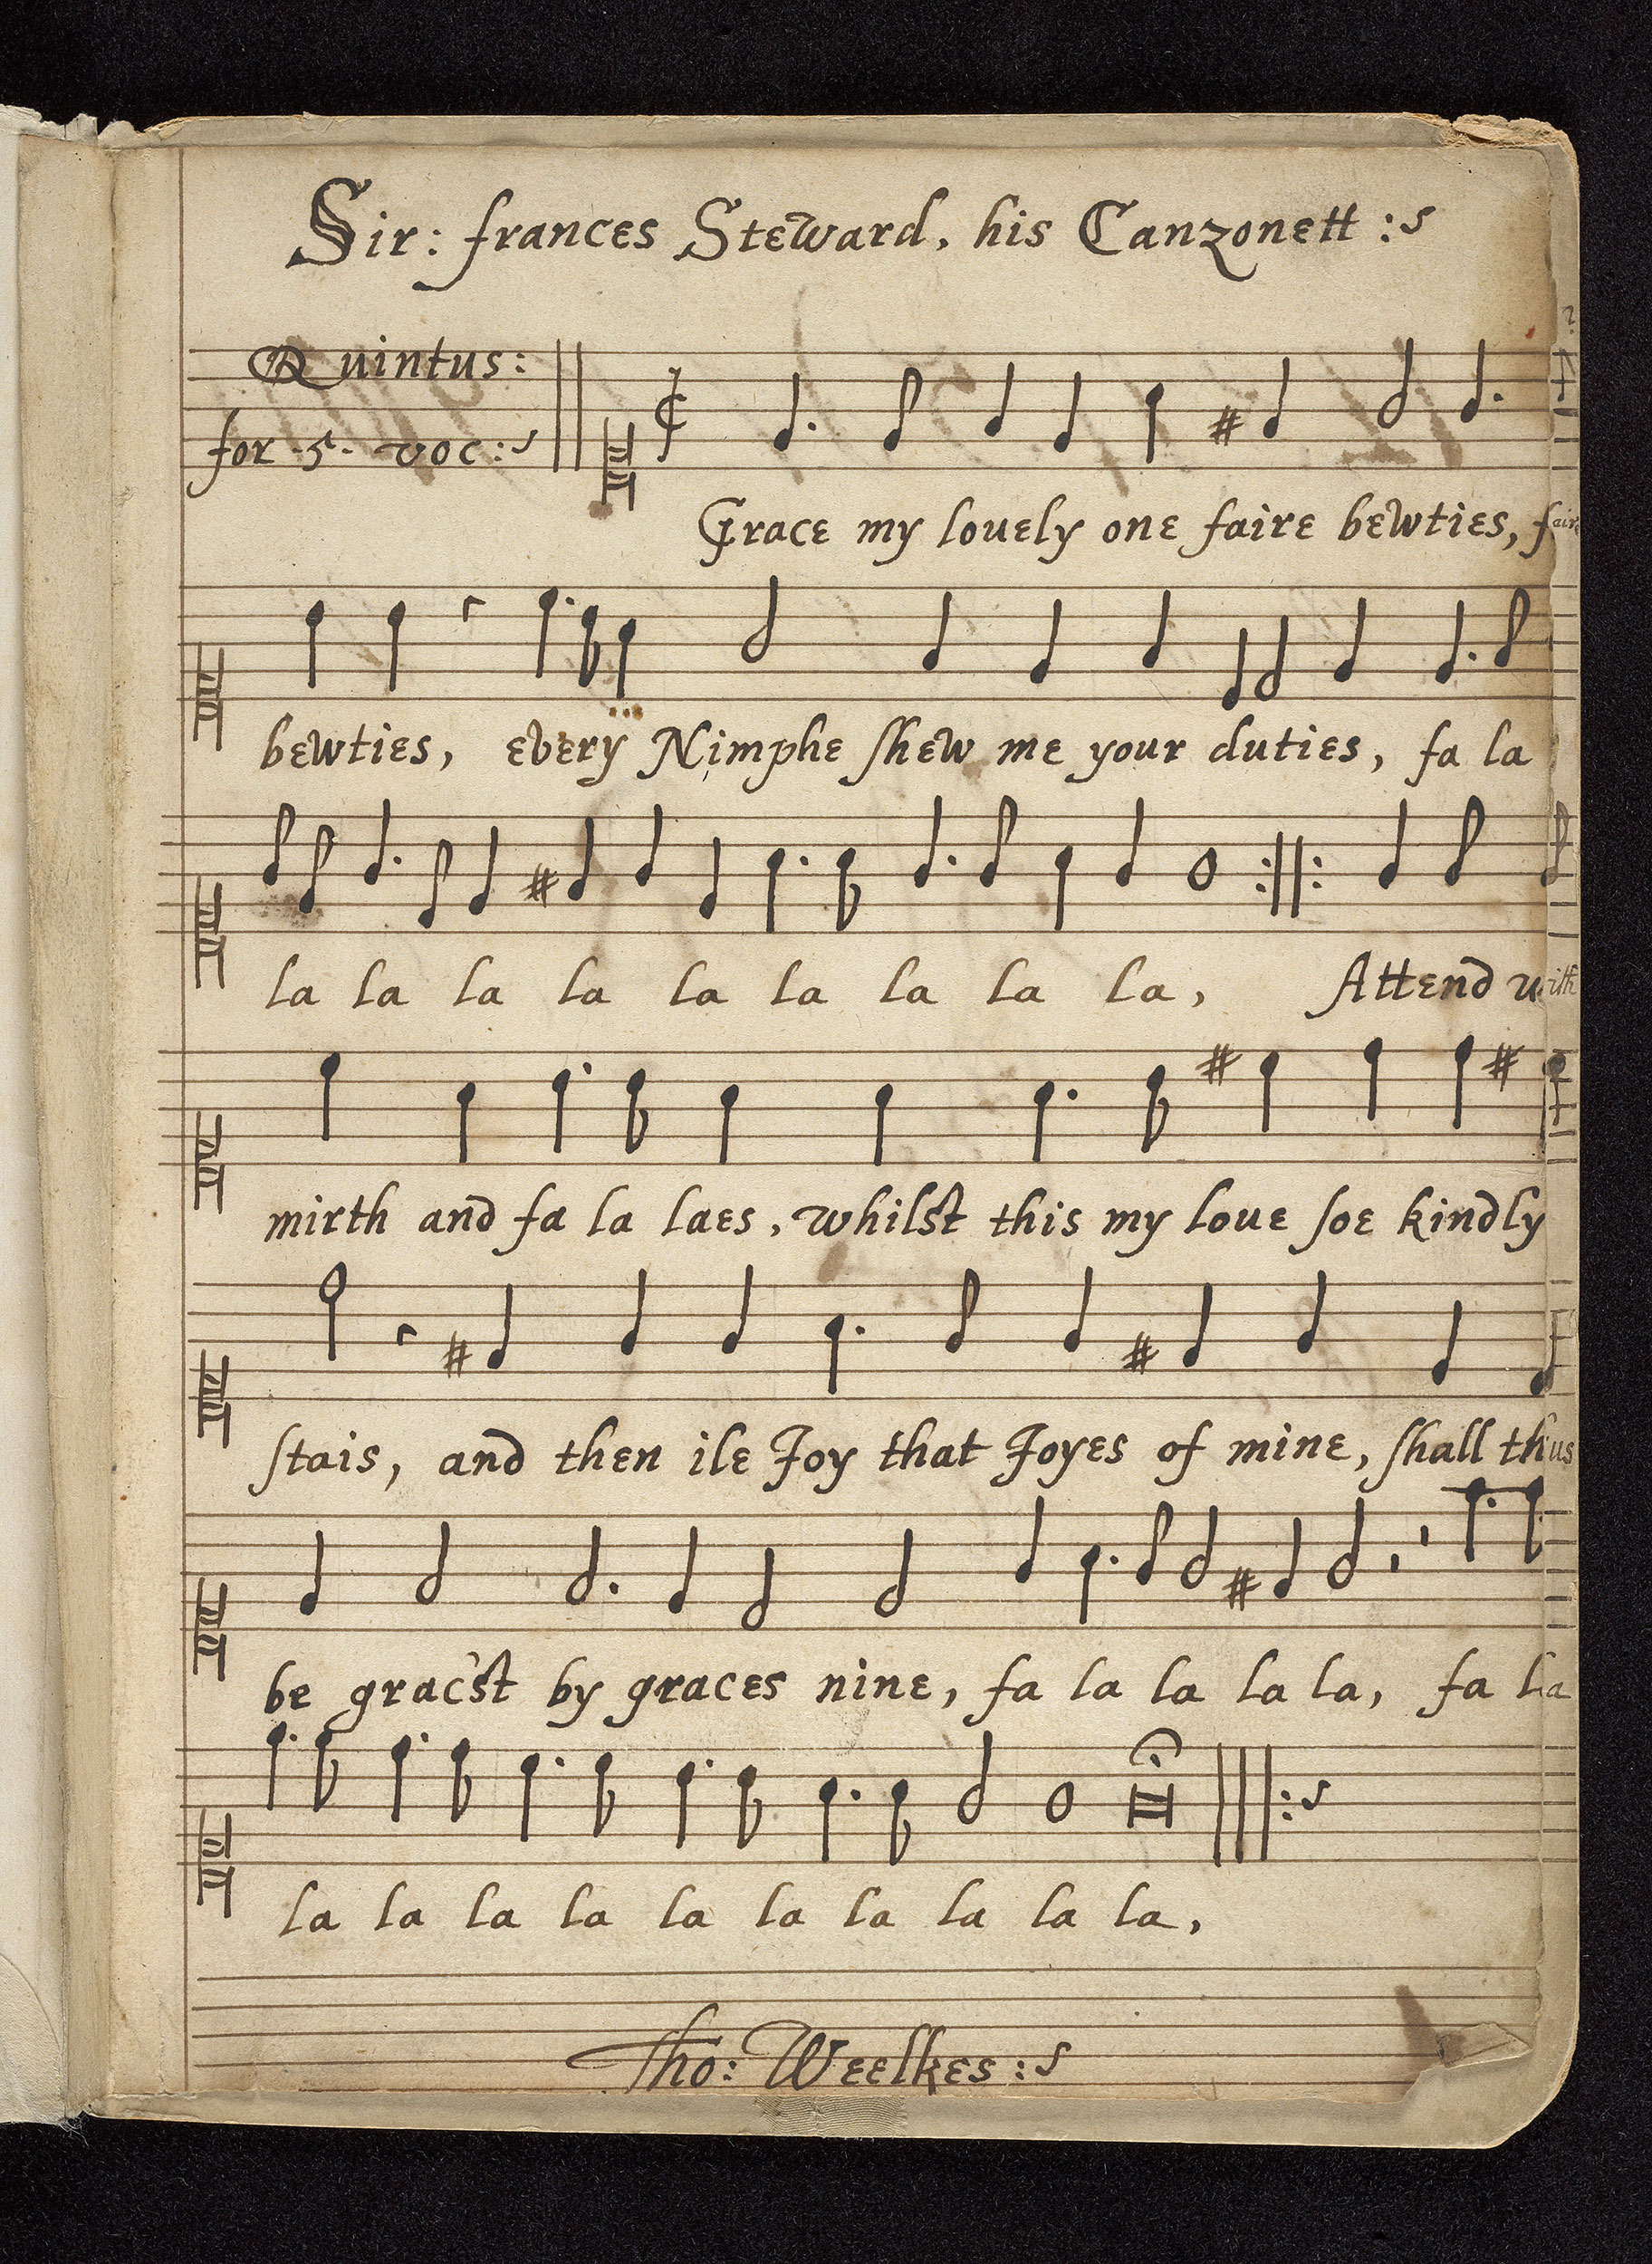 Sir: frances Steward, his Canzonett :s
Quintus:
for .5. voc :s
Grace my louely one faire bewties, faire
bewties, every Nimphe shew me your duties, fa la
la la la la la la la la la, Attend with
mirth and fa la laes, whilst this my loue soe kindly
stais, and then ile Joy that Joyes of mine, shall thus
be grac'st by graces nine, fa la la la la, fa la
la la la la la la la la la la,
Tho: Weelkes :s